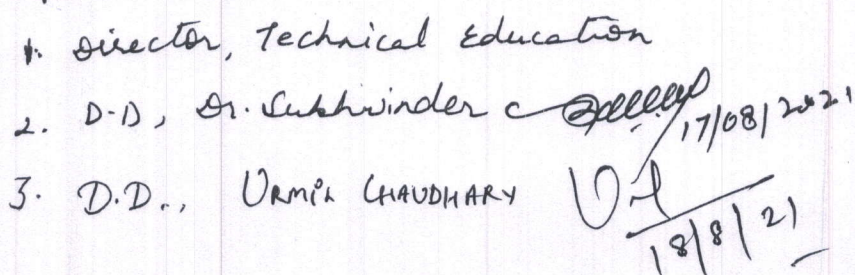 1. Director, Technical Education
2. D-D, Dr. Sukhwinder 17/08/2021
3. D.D., URMIL CHAUDHARY 18/8/21